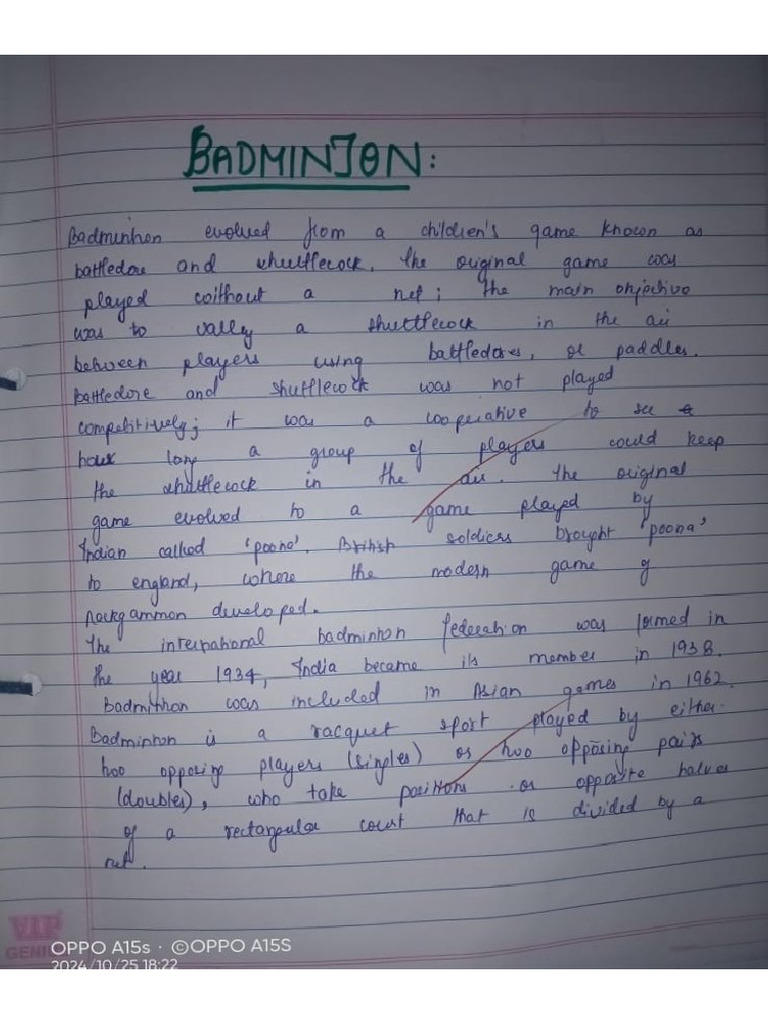 BADMINTON:
Badminton evolved from a children's game known as
battledore and shuttlecock. The original game was
played without a net; the main objective
was to vally a shuttlecock in the air
between players using battledores, or paddles.
battledore and shuttlecock was not played
competitively; it was a cooperative to see
how long a group of players could keep
the shuttlecock in the air. The original
game evolved to a game played by
Indian called 'poona'. British soldiers brought 'poona'
to england, where the modern game of
developed.
The international badminton federation was formed in
the year 1934, India became its member in 1938.
Badminton was included in Asian games in 1962.
Badminton is a racquet sport played by either
two opposing players (singles) or two opposing pairs
(doubles), who take positions on opposite halves
of a rectangular court that is divided by a
net.
VIP
OPPO A15s · ©OPPO A15S
2024/10/25 18:22